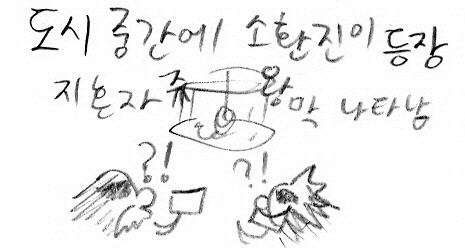 도시 중간에 소환진이 등장
지 혼자 쥬왕 막 나타남
?! ?!